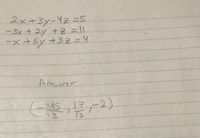 2x+3y-4z=5
-3x+2y+z=11
-x+5y+3z=4
Answer
(-45/13, 17/13, -2)